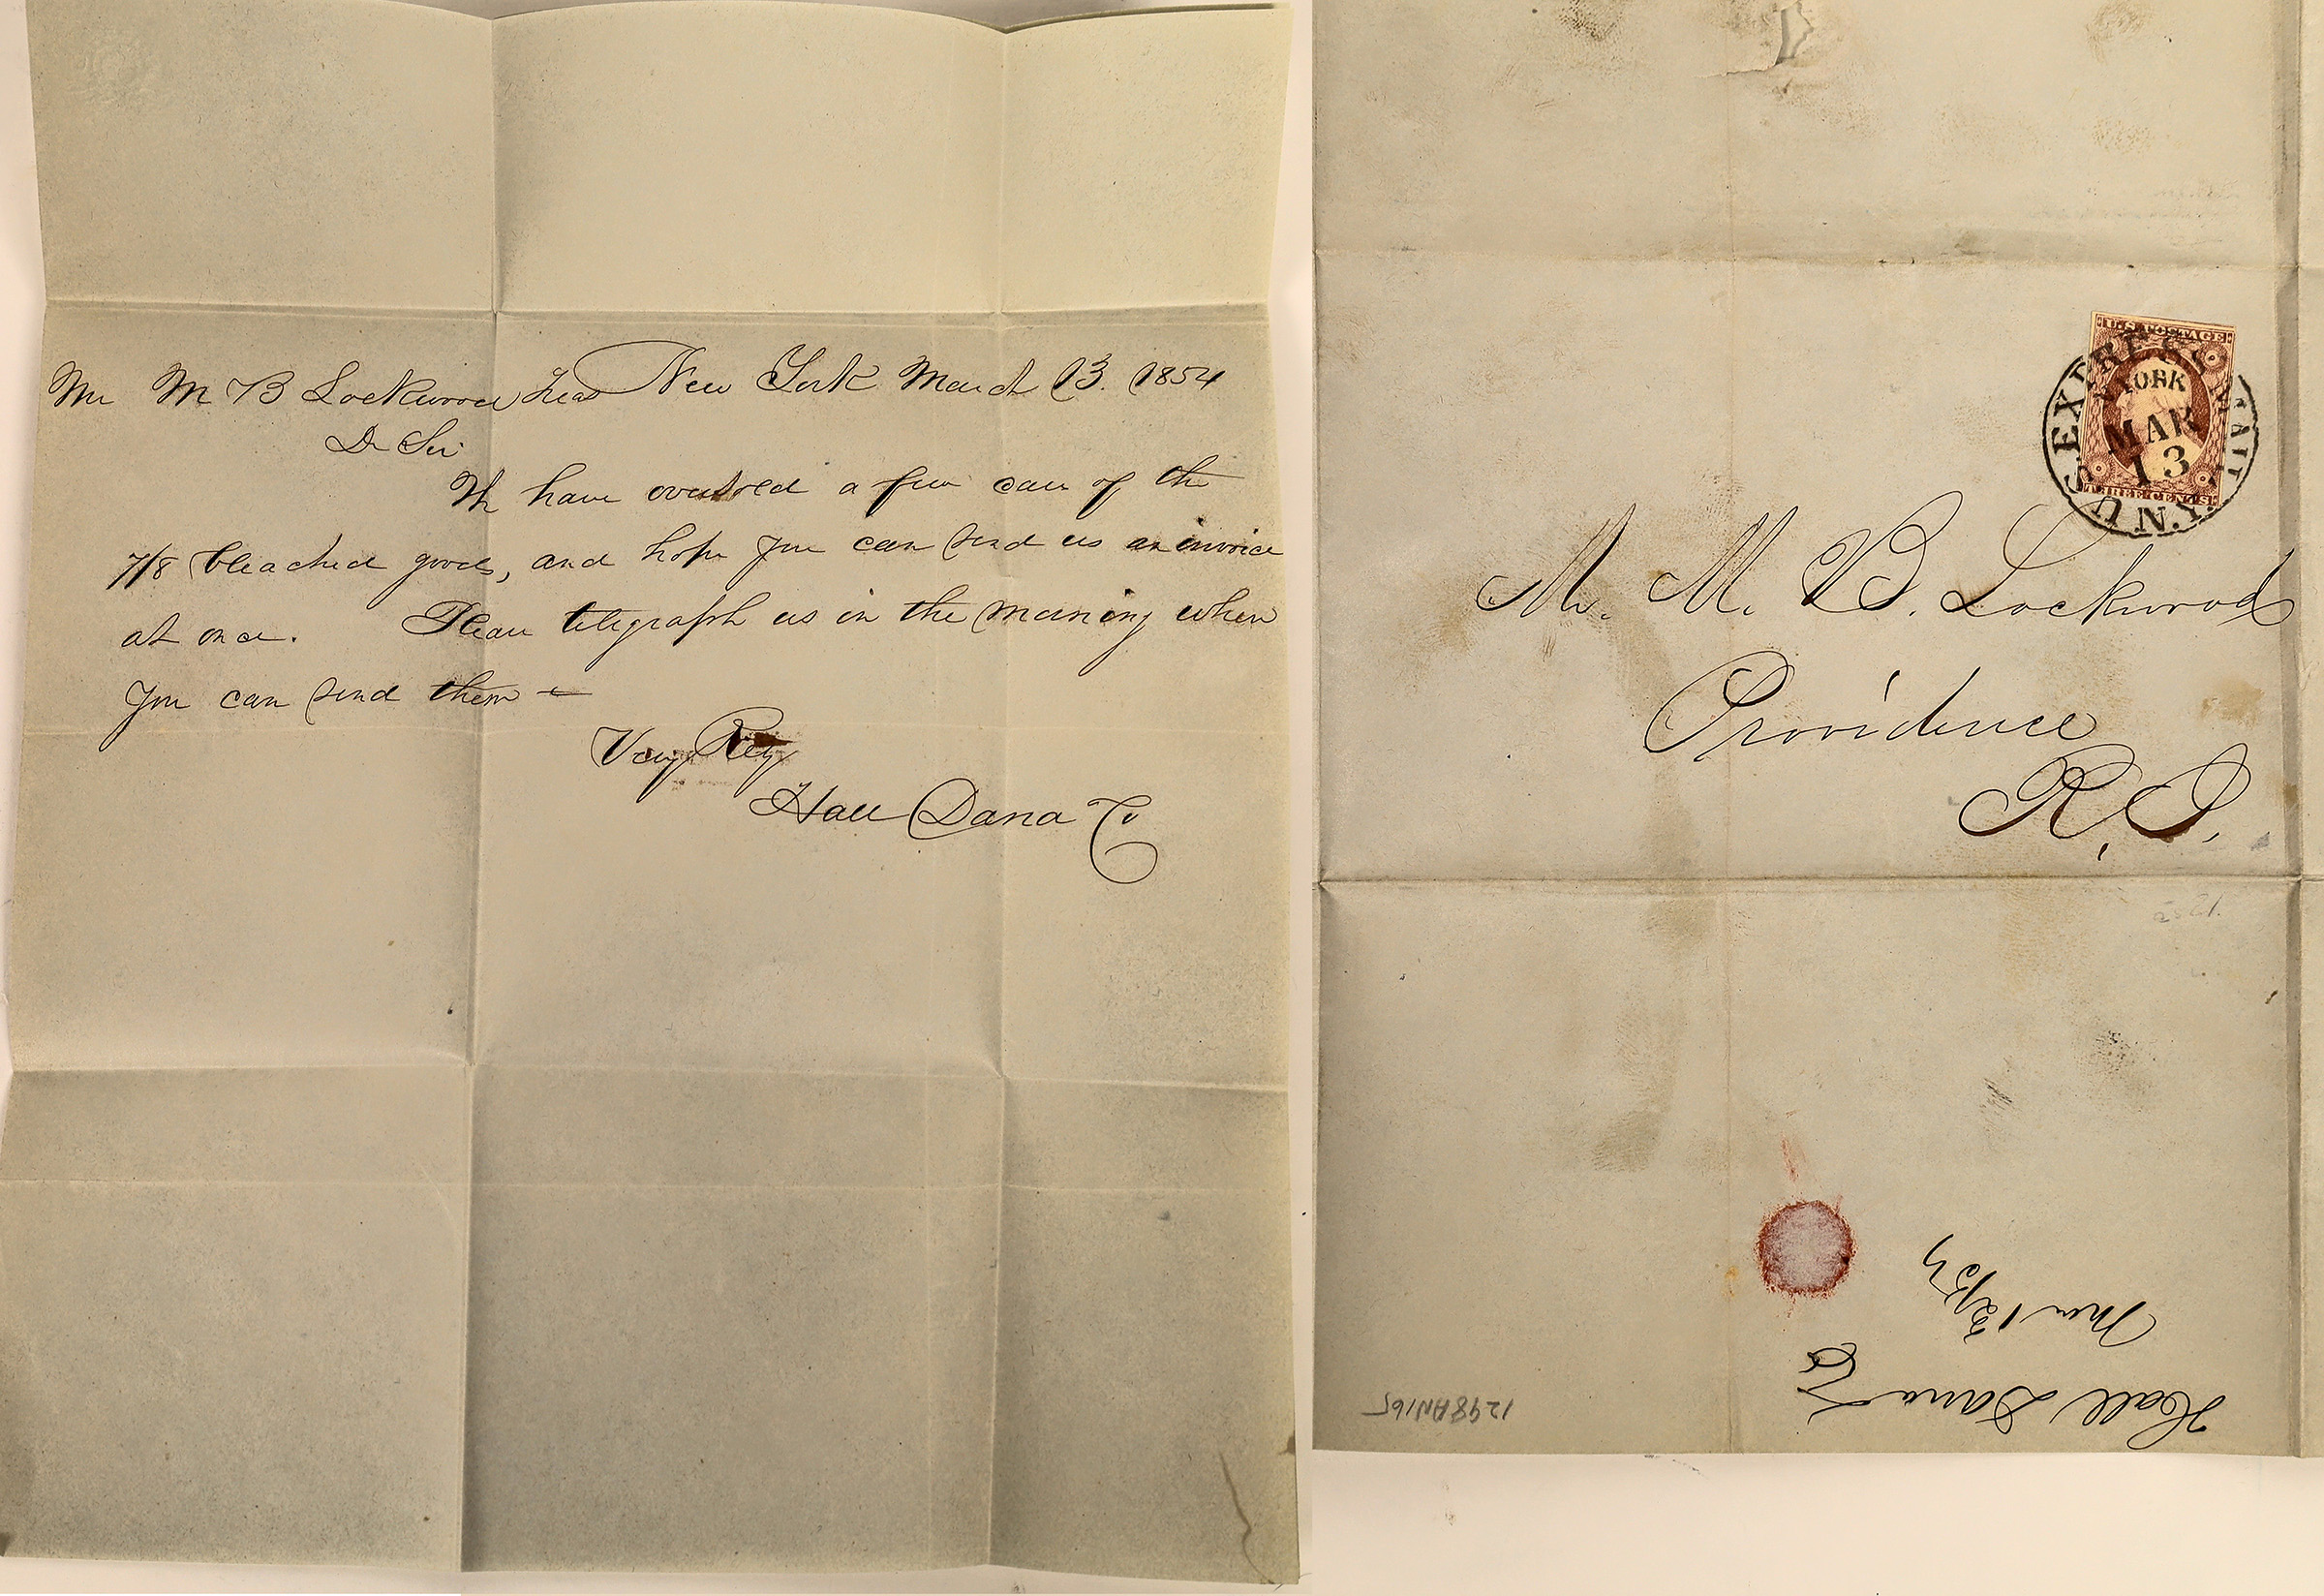 Mr M B Lockwood Treas New York March 13. 1854
Dr Sir
We have oversold a few cases of the
7/8 bleached goods, and hope you can send us an invoice
at once. Please telegraph us in the morning when
you can send them
Very Rey
Hall Dana Co
U.S. POSTAGE
THREE CENTS
U.S. EXPRESS MAIL N.Y.
YORK
MAR
13
Mr. M. B. Lockwood
Providence
R. I.
Hall Dana Co
Mar 13/54
1298AN165